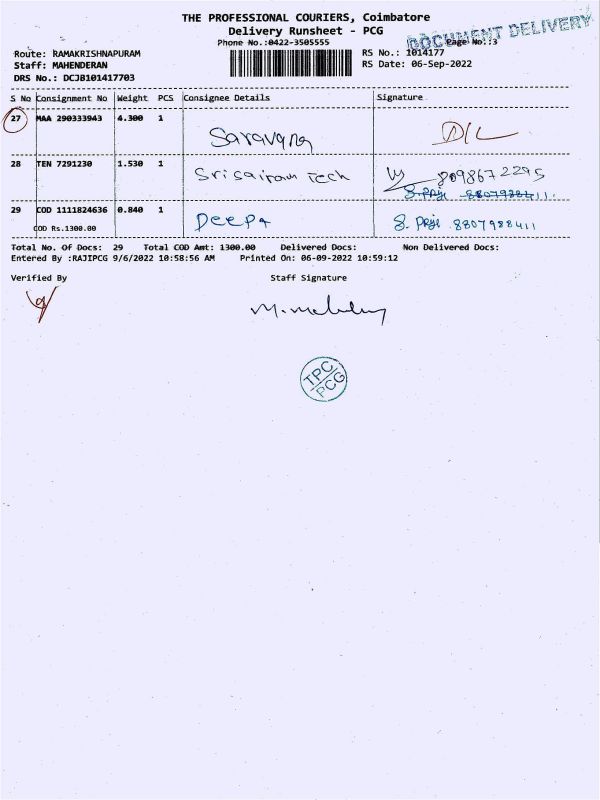 THE PROFESSIONAL COURIERS, Coimbatore
Delivery Runsheet - PCG
DOCUMENT DELIVERY
Phone No.:0422-3505555
Page No.:3
Route: RAMAKRISHNAPURAM
RS No.: 1014177
Staff: MAHENDERAN
RS Date: 06-Sep-2022
DRS No.: DCJB101417703
S No Consignment No Weight PCS Consignee Details Signature
27 MAA 290333943 4.300 1 Saravana D/L
28 TEN 7291230 1.530 1 Srisairam Tech 8098672295
8807988411
29 COD 1111824636 0.840 1 Deepa 8807988411
COD Rs.1300.00
Total No. Of Docs: 29 Total COD Amt: 1300.00 Delivered Docs: Non Delivered Docs:
Entered By :RAJIPCG 9/6/2022 10:58:56 AM Printed On: 06-09-2022 10:59:12
Verified By Staff Signature
TPC
PCG